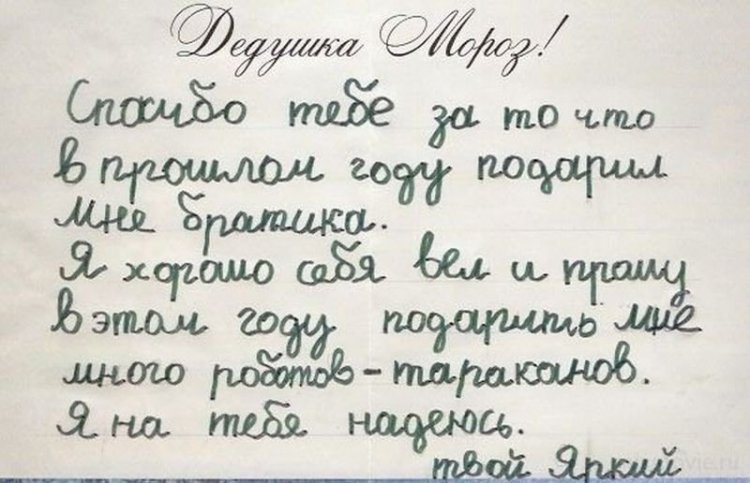 Дедушка Мороз!
Спасибо тебе за то что
в прошлом году подарил
мне братика.
Я хорошо себя вел и прошу
в этом году подарить мне
много роботов-тараканов.
Я на тебя надеюсь.
твой Яркий